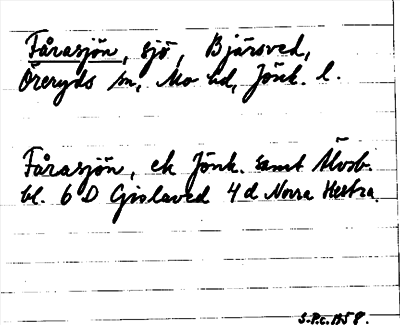 Fårasjön, sjö, Bjärsved,
Öreryds sn, Mo hd, Jönk. l.
Fårasjön, ek Jönk. samt Älvsb.
bl. 6 D Gislaved 4 d Norra Hestra.
S.P.C. 1958.